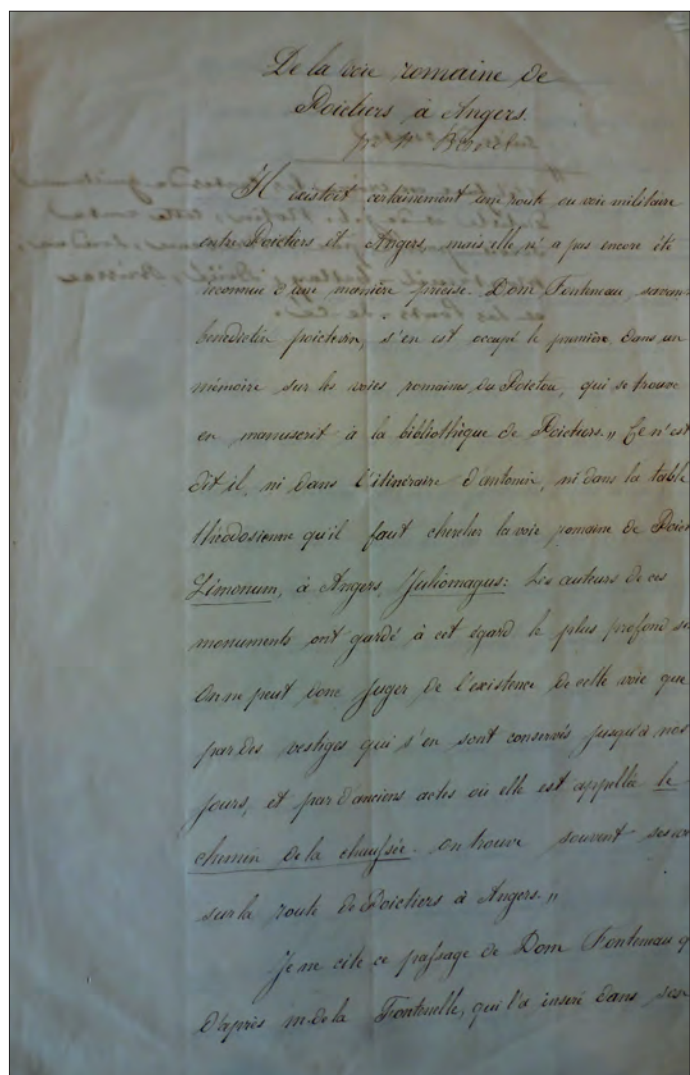 De la voie romaine de
Poictiers à Angers.
Il existoit certainement une route ou voie militaire
entre Poictiers et Angers, mais elle n'a pas encore été
reconnue d'une manière précise. Dom Fonteneau, savan
benedictin poictevin, s'en est occupé le premier dans un
mémoire sur les voies romaines du Poictou, qui se trouve
en manuscrit à la bibliothèque de Poictiers. " Ce n'est
dit il, ni dans l'itinéraire d'antonin, ni dans la table
théodosienne qu'il faut chercher la voie romaine de Poict
Limonum, à Angers, Juliomagus: Les auteurs de ces
monuments ont gardé à cet égard le plus profond si
On ne peut donc juger de l'existence de cette voie que
par des vestiges qui s'en sont conservés jusqu'à nos
jours, et par d'anciens actes où elle est appellée le
chemin de la chaussée. On trouve souvent
sur la route de Poictiers à Angers. "
Je ne cite ce passage de Dom Fonteneau q
d'après m. de la Fontenelle, qui l'a inséré dans ses